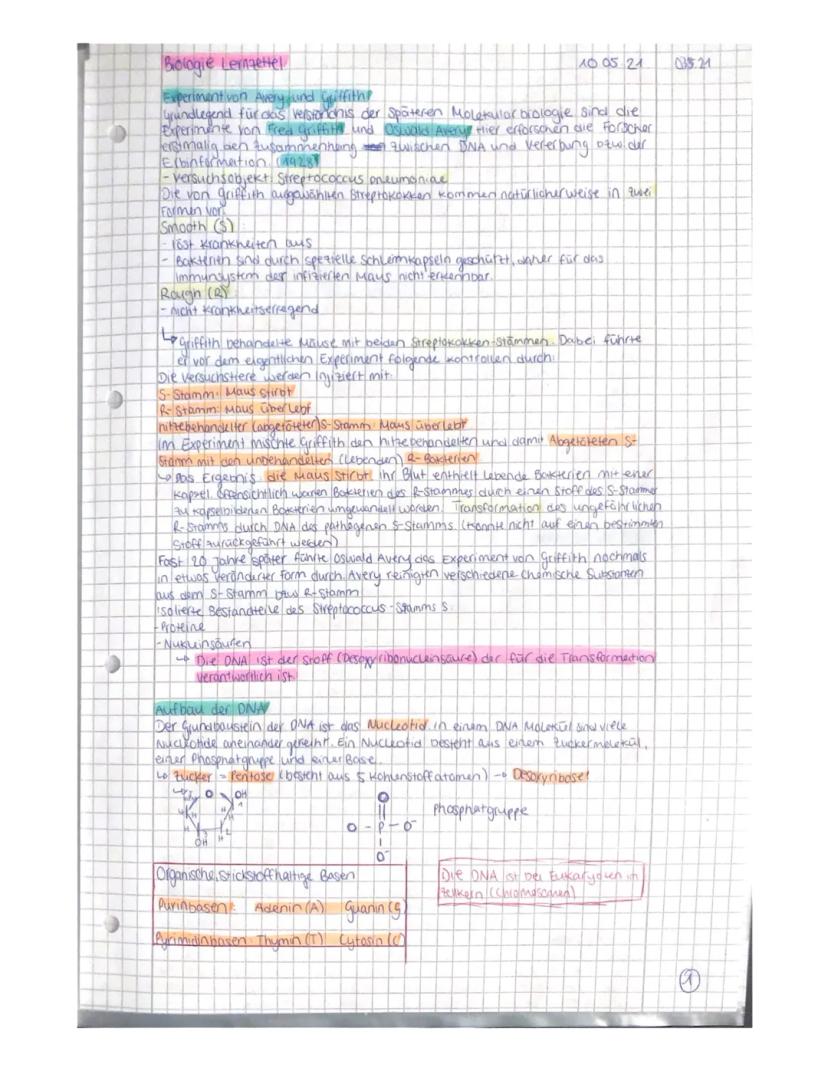 Biologie Lernzettel 10.05.21
Experiment von Avery und Griffith
Grundlegend für das Verständnis der späteren Molekularbiologie sind die
Experimente von Fred Griffith und Oswald Avery. Hier erforschen die Forscher
erstmalig den Zusammenhang zwischen DNA und Vererbung bzw. der
Erbinformation. (1928)
- Versuchsobjekt: Streptococcus pneumoniae
Die von Griffith ausgewählten Streptokokken kommen natürlicherweise in zwei
Formen vor:
Smooth (S)
- löst Krankheiten aus
- Bakterien sind durch spezielle Schleimkapseln geschützt, daher für das
Immunsystem der infizierten Maus nicht erkennbar.
Rough (R)
- nicht krankheitserregend
↳ Griffith behandelte Mäuse mit beiden Streptokokken-Stämmen. Dabei führte
er vor dem eigentlichen Experiment folgende Kontrollen durch:
Die Versuchstiere werden injiziert mit:
S-Stamm: Maus stirbt
R-Stamm: Maus überlebt
hitzebehandelter (abgetöteter) S-Stamm: Maus überlebt
Im Experiment mischte Griffith den hitzebehandelten und damit Abgetöteten S-
Stamm mit den unbehandelten (lebenden) R-Bakterien
↳ Das Ergebnis: die Maus stirbt. Ihr Blut enthielt lebende Bakterien mit einer
Kapsel. Offensichtlich waren Bakterien des R-Stammes durch einen Stoff des S-Stammes
zu kapselbildenen Bakterien umgewandelt worden. Transformation des ungefährlichen
R-Stamms durch DNA des pathogenen S-Stamms. (konnte nicht auf einen bestimmten
Stoff zurückgeführt werden)
Fast 20 Jahre später führte Oswald Avery das Experiment von Griffith nochmals
in etwas veränderter Form durch. Avery reinigten verschiedene chemische Substanzen
aus dem S-Stamm bzw. R-Stamm
Isolierte Bestandteile des Streptococcus-Stamms S:
- Proteine
- Nukleinsäuren
↳ Die DNA ist der Stoff (Desoxyribonucleinsäure) der für die Transformation
verantwortlich ist.
Aufbau der DNA
Der Grundbaustein der DNA ist das Nucleotid. In einem DNA Molekül sind viele
Nucleotide aneinander gereiht. Ein Nucleotid besteht aus einem Zuckermolekül,
einer Phosphatgruppe und einer Base.
↳ Zucker = Pentose (besteht aus 5 Kohlenstoffatomen) → Desoxyribose!
O OH
O
Phosphatgruppe
O - P - O⁻
O⁻
H
OH H
Organische, stickstoffhaltige Basen
Purinbasen: Adenin (A) Guanin (G)
Pyrimidinbasen: Thymin (T) Cytosin (C)
Die DNA ist bei Eukaryoten im
Zellkern (Chromosomen)
1